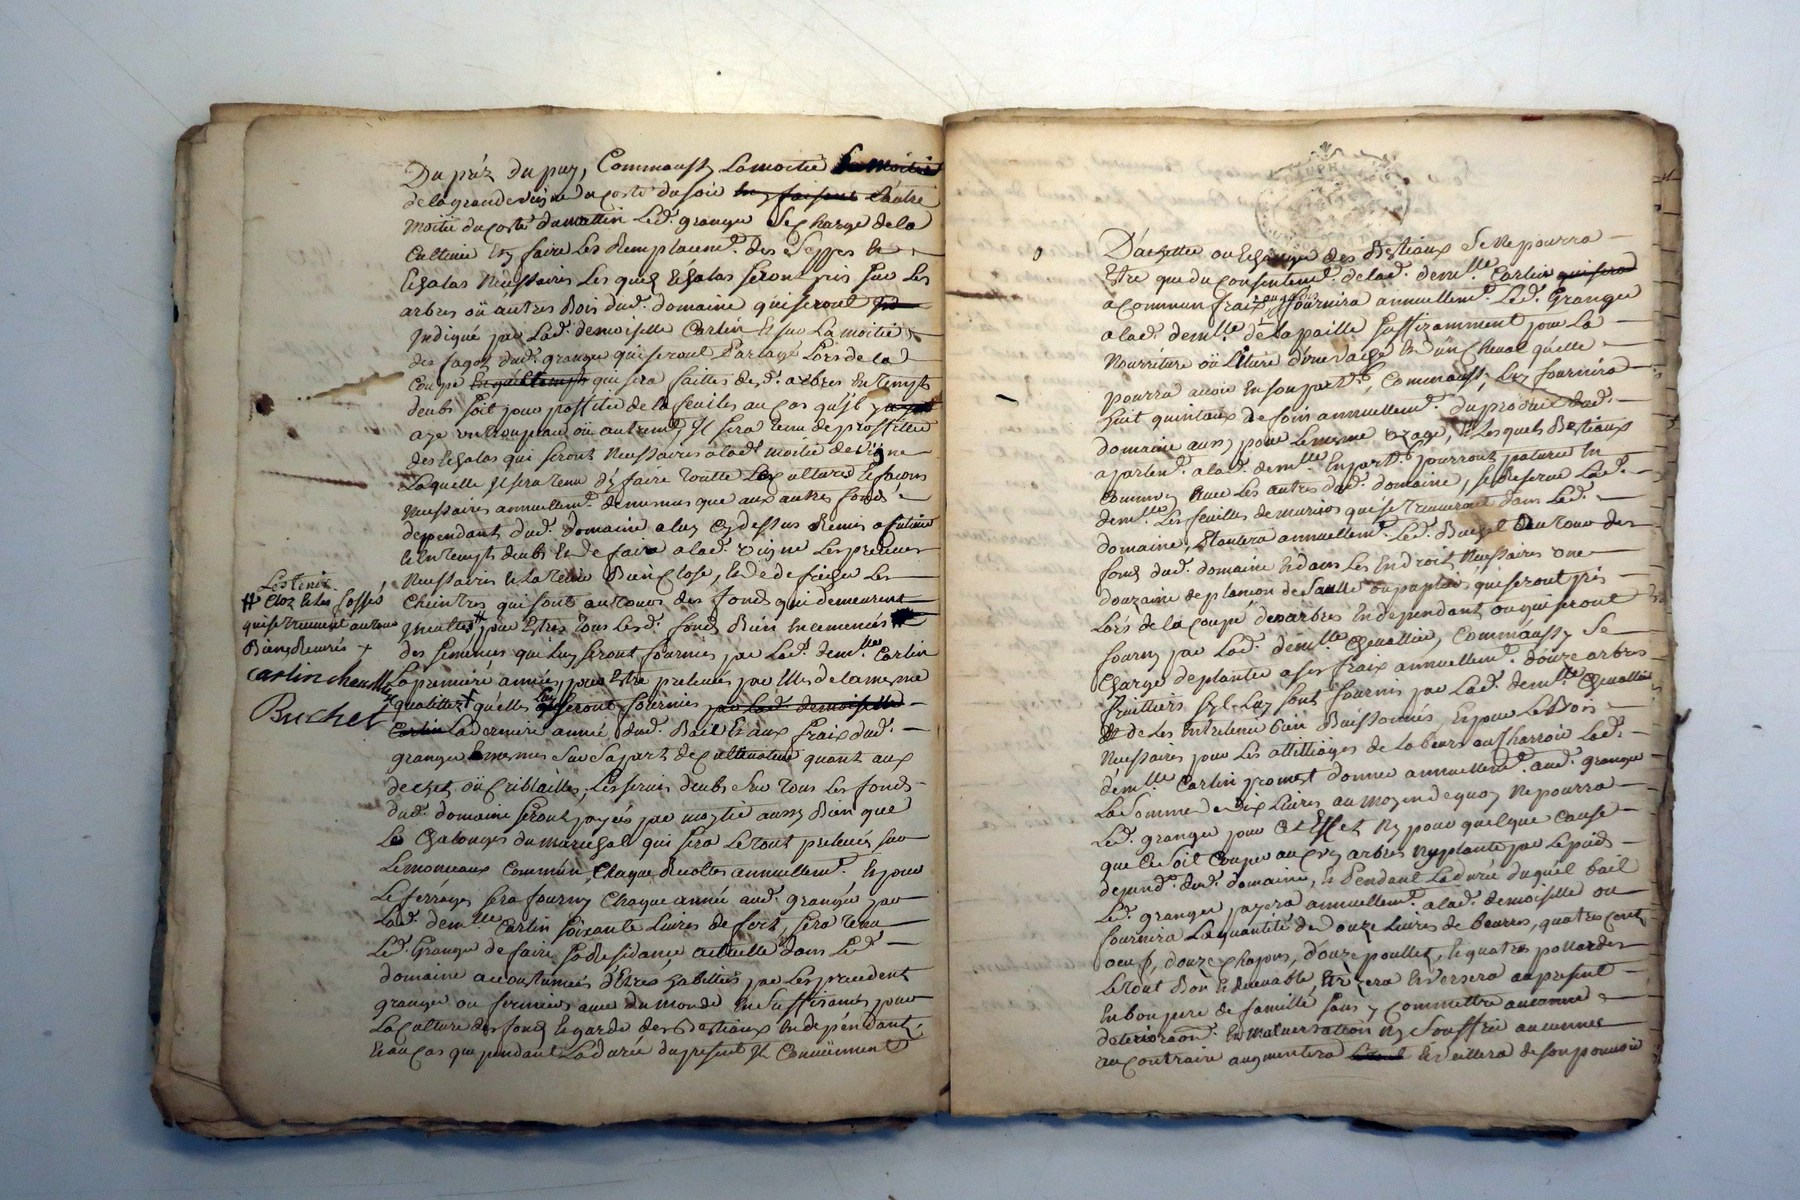 Du préz du puy, Commaussy La moitié La moitié
de la grande vigne du costé du soir l'autre
moitié du costé du mattin Led. granger Se charge de la
Culture Et y faire Les Remplacemt. Des Seppes Et
Echalas Nessaires Les quels Echalas seront pris sur Les
arbres où autres Bois dud. domaine qui seront
Indiqué par Lad. demoiselle Carlin Et sur La moitié
des fagot dud. granger qui seront Partagé Lors de la
Coupe qui sera faittes desd. arbres En temps
deubs soit pour proffiter de la feuiles au Cas qu'il y
aye un troupeau où autremt. Il sera tenu de proffitter
des Echalas qui seront Nessaires a lad. moitié de Vigne
Laquelle Il sera tenu d'y faire toutte Les Cultures Et façons
Nessaires annuellemt. de mesmes que aux autres fonds
dependant dud. domaine a luy Cy dessus Remis
Et En temps deubs Et de faire a lad. vigne Les
Nessaires Et La tenir Bien Close, Et de Les
Cheintres qui sont autour des fonds qui demeurent
pour Estre tous Lesd. fonds Bien Encemencés
des semences qui Luy seront fournies par Lad. demlle. Carlin
La premiere années, pour Estre prelevées par Elles de la mesme
quallittez qu'elles Luy seront fournies par Lad. demoiselle
Carlin La derniere année dud. Bail Et aux fraix dud.
granger Et mesmes Sur Sa part de Cultivateur quant aux
dechet, où Criblailles, Les servis deubs sur tous Les fonds
dud. domaine seront payés par moytié aussy Bien que
Les du marechal qui sera Le tout prelevés sur
Le monceaux Commun, Chaque Recoltes annuellemt. Et pour
Le ferrages sera fourny Chaque année aud. granger par
Lad. demlle. Carlin soixante Livres de fert, sera tenu
Led. Granger de faire sa Residance actuelle dans Led.
domaine accoutumées d'Etres habittés par Les precedent
granger ou fermiers avec du monde En Suffisance pour
La Culture des fonds Et garde des Bestiaux En dépendant
Et au Cas que pendant La durée du present Il Conviennent
Les Tenir
# Cloz Et Les fossés
qui se trouvent autour
Bien Recurés
carlin chevallier
Buchet
D'achetter ou Echanger des Bestiaux Se Ne pourra
Etre que du Consentemt. de lad. demlle. Carlin qui sera
a Commun fraix, fournira annuellemt. Led. Granger
a lad. demlle. de la paille suffizamment pour La
Nourriture où Littiere d'une vache Et d'un Cheval qu'elle
pourra avoir En son part., Commaussy, Luy fournira
huit quintaux de foin annuellemt. du produit dud.
domaine aussy pour Le mesme uzage, Lesquels Bestiaux
apartent. a lad. demlle. En part. pourront paturer En
Commun avec Les autres dud. domaine, se Reserve Lad.
demlle. Les feuilles de muriers qui se trouveront dans Led.
domaine, Plantera annuellemt. Led. Buchet autour des
fonds dud. domaine Et dans Les Endroit Nessaires une
douzaine de plançon de Saulle ou pupliers, qui seront pris
Lors de la Coupe des arbres En dependant ou qui seront
fourny par Lad. demlle. Chevallier, Commaussy Se
Charge de planter a ses fraix annuellemt. douze arbres
fruittiers qui Luy sont fournis par Lad. demlle. Chevallier
Et de Les Entretenir Bien Buissonnés, Et pour Le Bois
Nessaires pour Les attillages de Labeurs ou Charroir Lad.
demlle. Carlin promet donner annuellemt. aud. granger
La Somme de dix Livres au moyen de quoy Ne pourra
Led. granger pour Cet Effet Ny pour quelque Cause
que Ce soit Couper aucuns arbres Ny plante par Le pied
dependt. dud. domaine, Et Pendant La durée duquel bail
Led. granger payera annuellemt. a lad. demoiselle ou
fournira La quantité de onze Livres de beurres, quatres Cent
oeufs, douze chapons, douze poullet, Et quatres poulardes
Le tout Bon Et Recevable, Et Versera au present
En bon pere de famille sans y Commettre aucunne
deterioraon. Et malversation Ny Souffrir aucunnes
au Contraire augmentera Et Veillera de son pouvoir